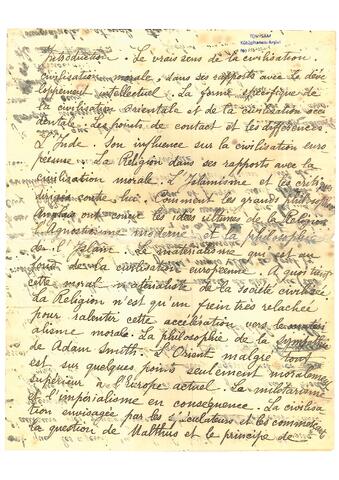 Introduction. Le vrais sens de la civilisation
civilisation morale, dans ses rapports avec le deve
loppement intellectuel. La forme spécifique de
la civilisation Orientale et de la civilisation occi
dentale. Les points de contact et les différences
L'Inde. Son influence sur la civilisation euro
peenne. La Religion dans ses rapports avec la
civilisation morale. L'Islamisme et les critiq
dirigés contre lui. Comment les grands philosoph
Anglais ont conçue les idées ultimes de la Religion
L'Agnosticisme moderne et la philosophie
de l'Islam. Le matérialisme qui est au
fond de la civilisation européenne. A quoi tient
cette moral matérialiste de la société civilisée
La Religion n'est qu'un frein très relachée
pour ralentir cette accélération vers le matéri
alisme morale. La philosophie de la sympathie
de Adam Smith. L'Orient malgré tout
est sur quelques points seulement moralement
supérieur à l'Europe actuel. Le militarisme
et l'impérialisme en conséquence. La civilisa
tion envisagée par les spéculateurs et les
la question de Malthus et le principe de